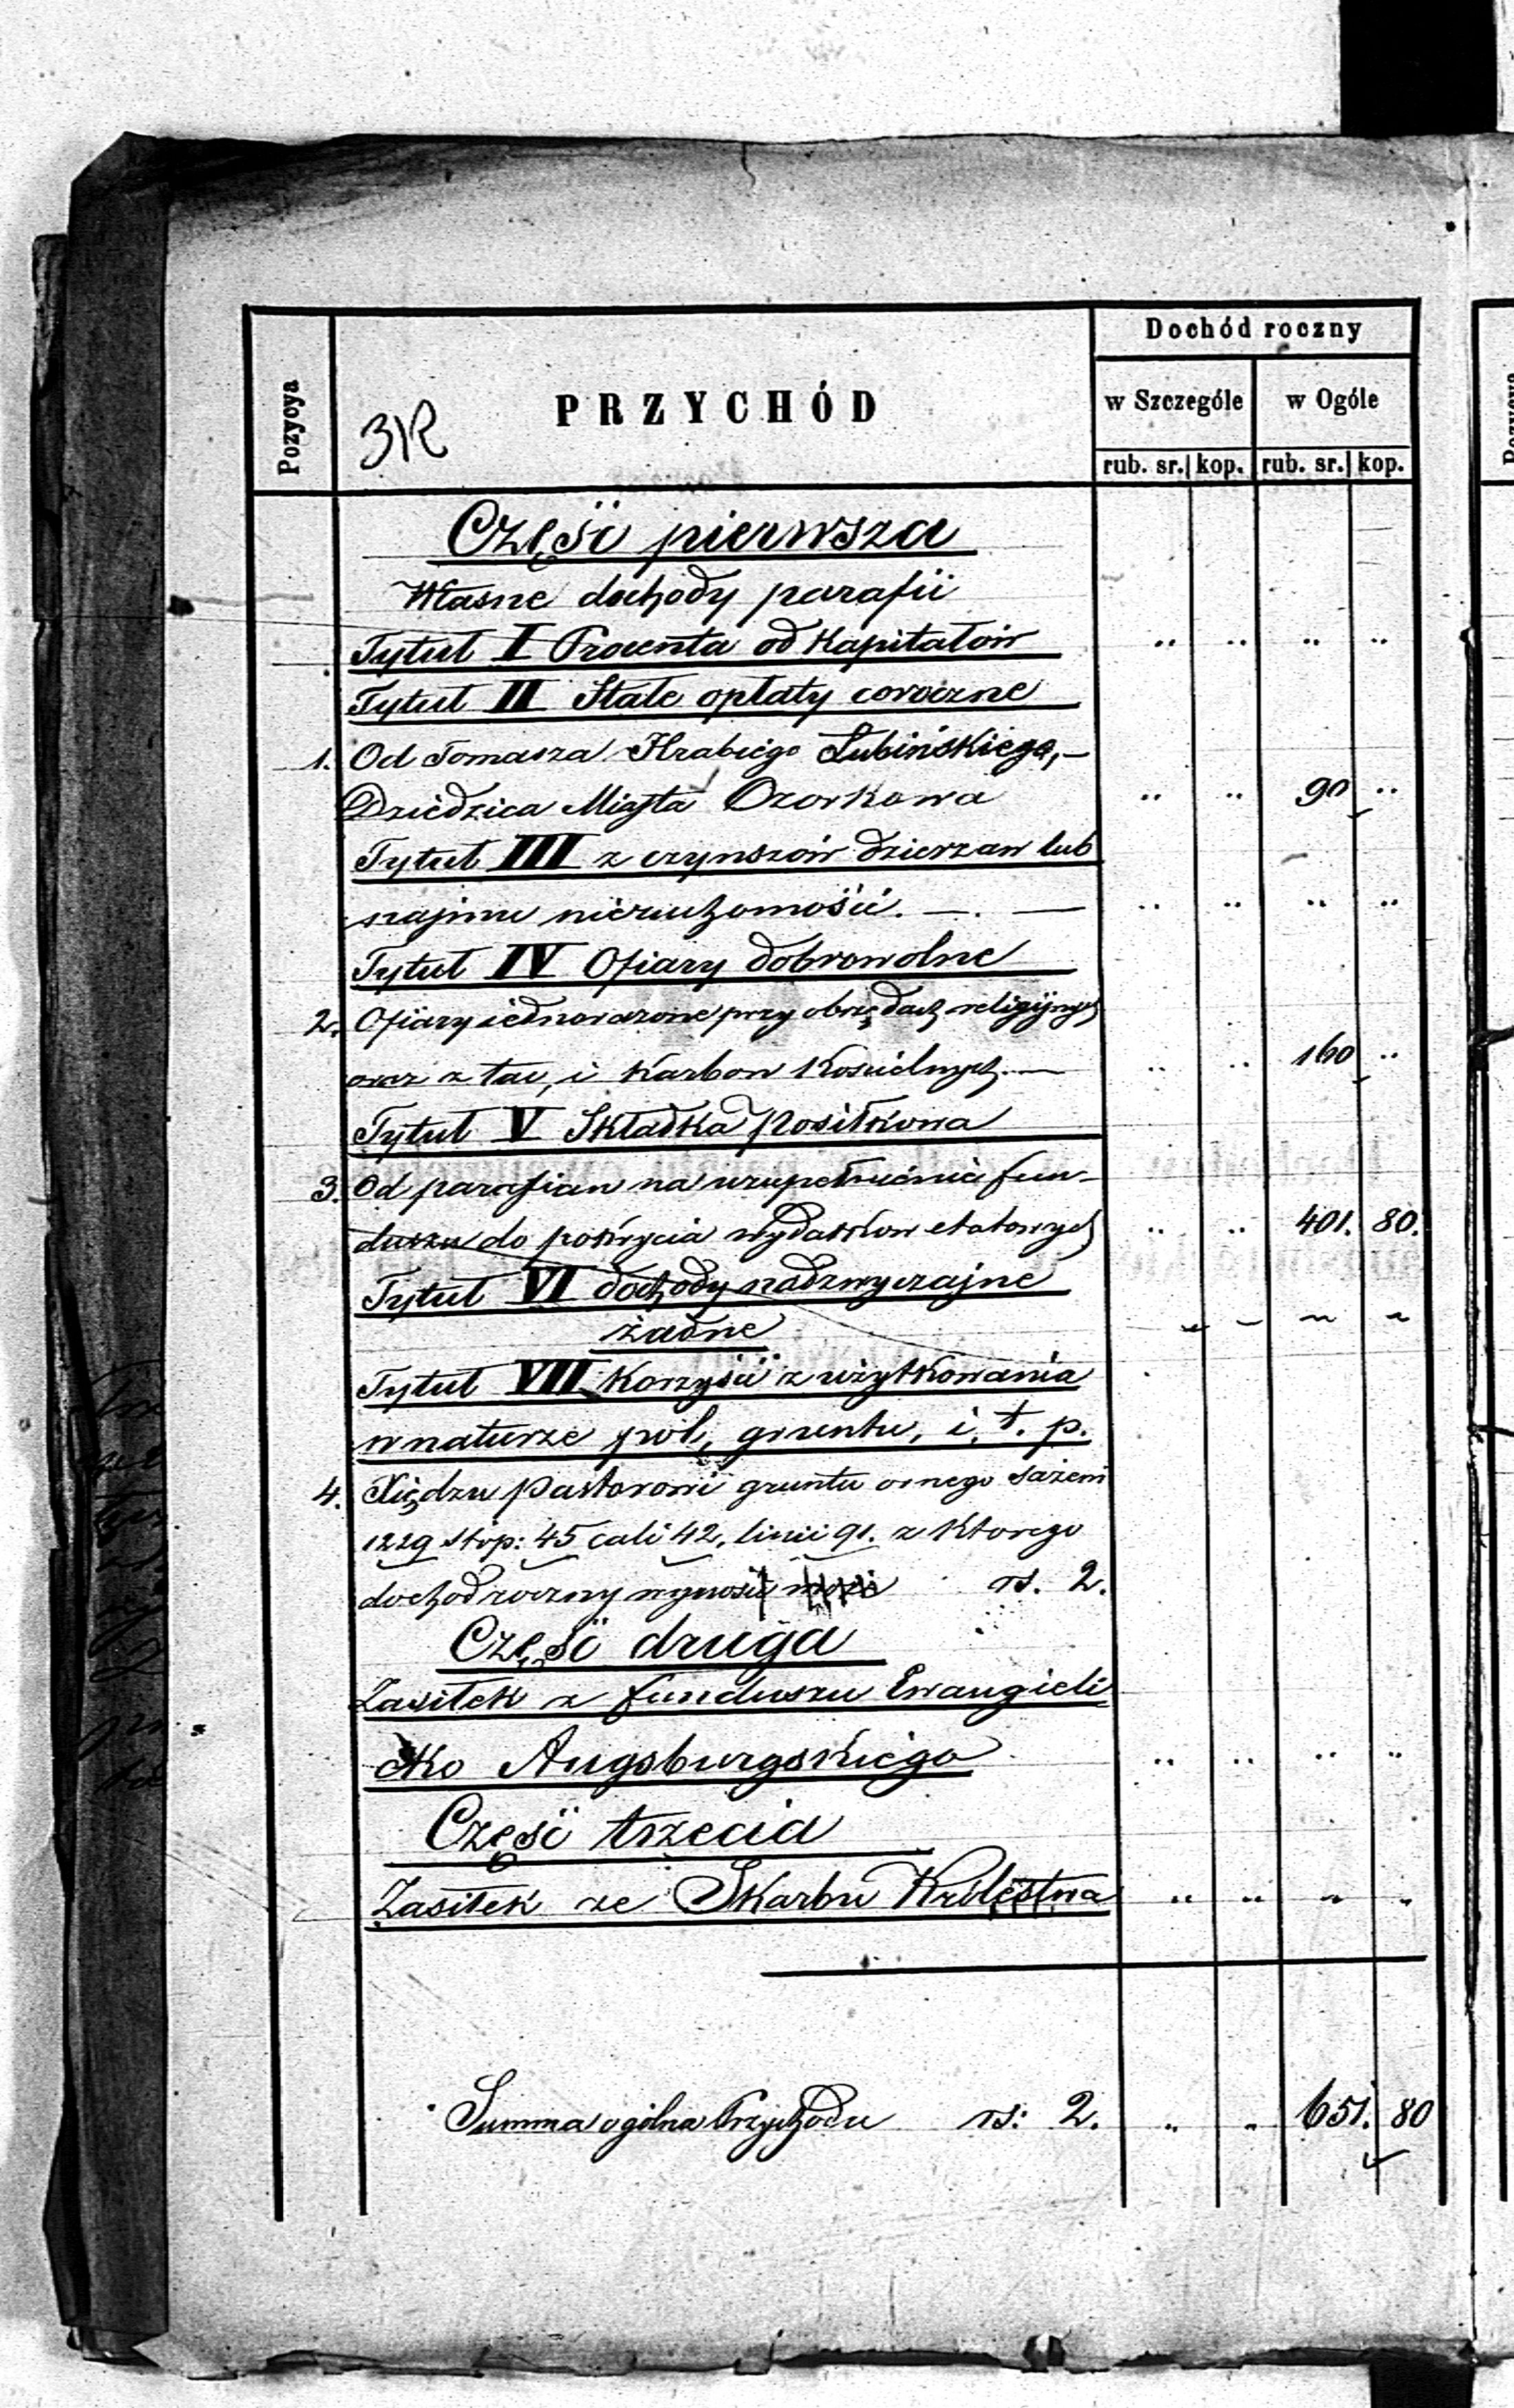 Dochód roczny
Pozycya
PRZYCHÓD
w Szczególe
w Ogóle
312
rub. sr. kop. rub. sr. kop.
Część pierwsza
Własne dochody parafii
Tytuł I Procenta od Kapitałów " " " "
Tytuł II Stałe opłaty coroczne
1. Od Tomasza Hrabiego Łubińskiego,—
Dziedzica Miasta Ozorkowa " " 90 "
Tytuł III z czynszów dzierzaw lub
najmu nieruchomości. —. — " " " "
Tytuł IV Ofiary dobrowolne
2. Ofiary jednorazowe przy obrzędach religijnych
oraz z tac, i Karbon Kościelnych.— " " 160 "
Tytuł V Składka Posiłkowa
3. Od parafian na uzupełnienie fun-
duszu do pokrycia wydatków etatowych " " 401. 80.
Tytuł VI dochody nadzwyczajne
żadne " " " "
Tytuł VII Korzyści z użytkowania
w naturze pól, gruntu, i. t. p.
4. Xiędzu Pastorowi gruntu ornego Sażeni
1229 stóp: 45 cali 42, linii 91. z Ktorego
dochod roczny wynosić może rs. 2.
Część druga
Zasiłek z funduszu Ewangieli
cko Augsburgskiego " " " "
Część trzecia
Zasiłek ze Skarbu Królestwa " " " "
Summa ogólna Przychodu rs: 2. " " 651. 80